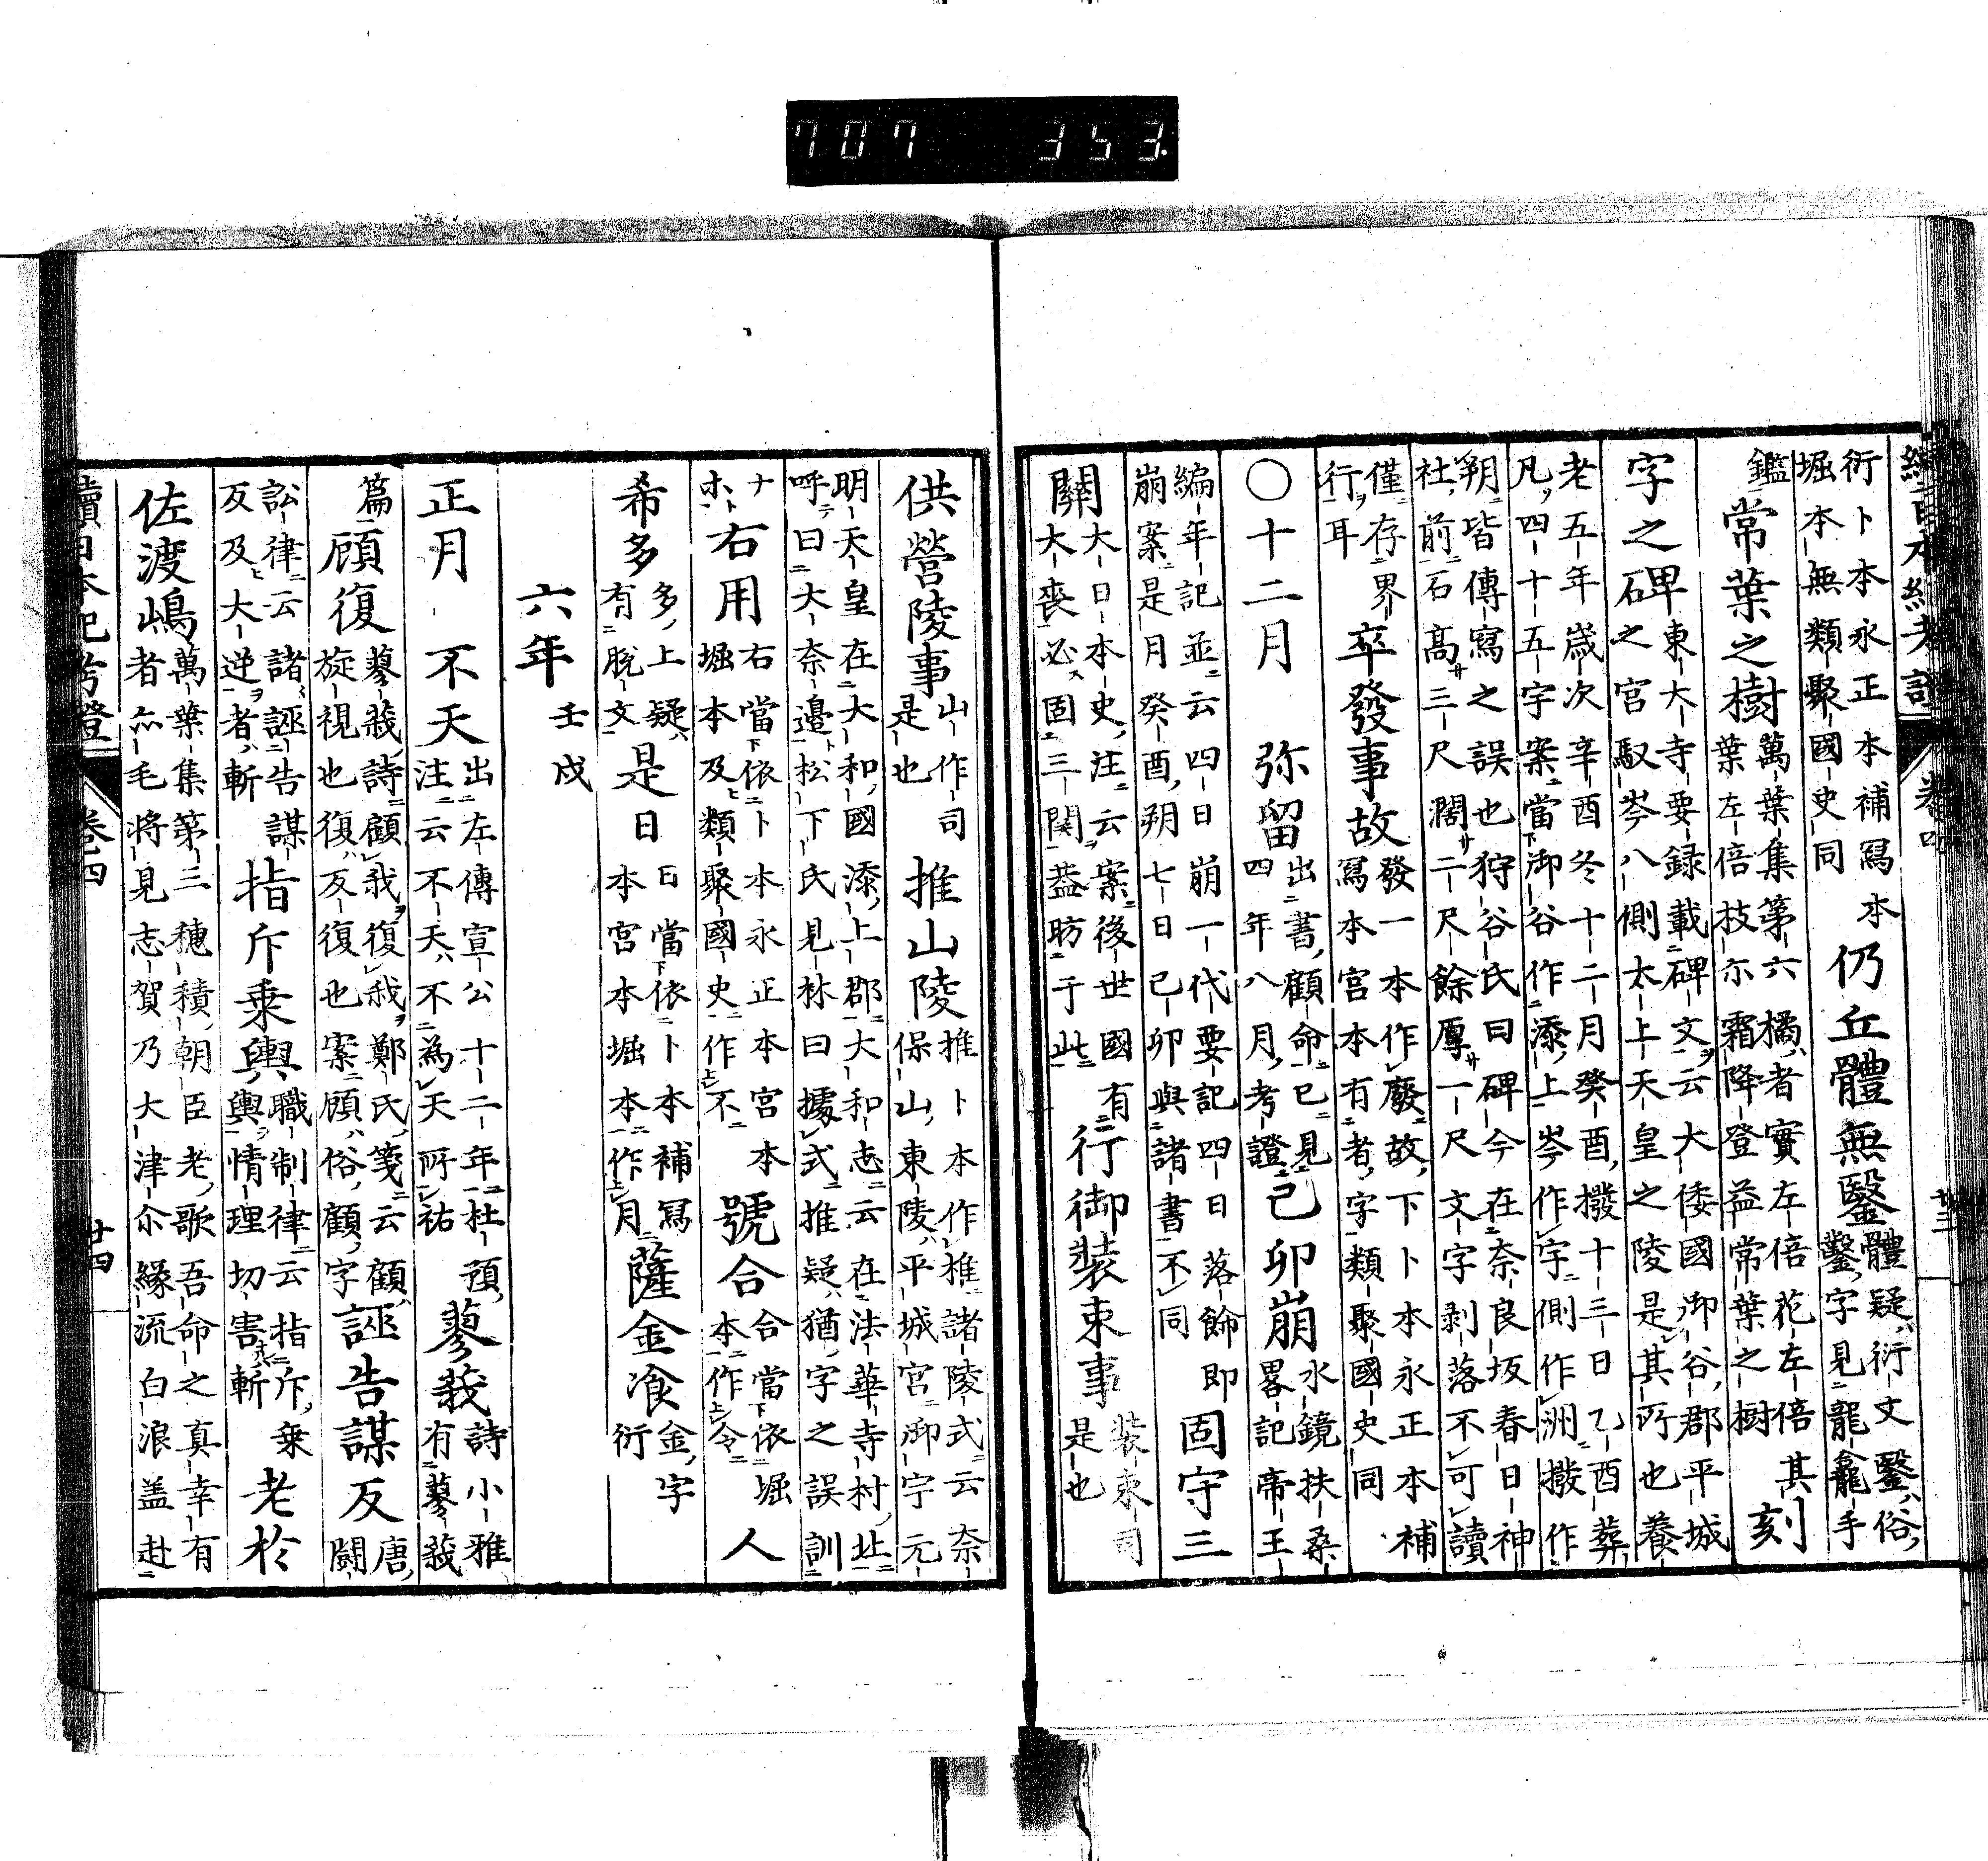 續日本紀考證 卷四 廿三
衍卜本永正本補冩本
堀本無類聚國史同
仍丘體無鑿
體疑衍文鑿俗
鑿字見龍龕手
鑑
常葉之樹
萬葉集第六橘者實左倍花左倍其
葉左倍枝尓霜降登益常葉之樹
刻
字之碑
東大寺要録載碑文云大倭國卭谷郡平城
之宮馭岺八側太上天皇之陵是其所也養
老五年歳次辛酉冬十二月癸酉撥十三日乙酉葬
凡四十五字案當御谷作添上岺作字側作洲撥作
朔皆傳寫之誤也狩谷氏曰碑今在奈良坂春日神
社前石髙サ三尺濶サ二尺餘厚サ一尺文字剥落不可讀
僅存界
行耳
卒發事故
發一本作廢故下卜本永正本補
冩本宮本有者字類聚國史同
〇十二月
弥留
出書顧命已見
四年八月考證
己卯崩
水鏡扶桑
畧記帝王
編年記並云四日崩一代要記四日落餝即
崩案是月癸酉朔七日己卯與諸書不同
固守三
關
大日本史注云案後世國有
大喪必固三関葢昉于此
行御裝束事
裝束司
是也
供營陵事
山作司
是也
推山陵
推卜本作椎諸陵式云奈
保山東陵平城宮御宇元
明天皇在大和國添上郡大和志云在法華寺村北
呼曰大奈邉松下氏見林曰據式推疑猶字之誤訓
ナ
ホ
右用
右當依卜本永正本宮本
堀本及類聚國史作不
號合
合當依堀
本作令
人
希多
多上疑
有脱文
是日
日當依卜本補冩
本宮本堀本作月
薩金飡
金字
衍
六年 壬戌
正月
不天
出左傳宣公十二年杜預
注云不天不為天所祐
蓼莪
詩小雅
有蓼莪
篇
顧復
蓼莪詩顧我復我鄭氏箋云顧
旋視也復反復也案顧俗顧字
誣告謀反
唐
闘
訟律云諸誣告謀
反及大逆者斬
指斥乗輿
職制律云指斥乗
輿情理切害斬
老於
佐渡嶋
萬葉集第三穗積朝臣老歌吾命之真幸有
者亦毛将見志賀乃大津尓縁流白浪盖赴
續日本紀考證 卷四 廿四